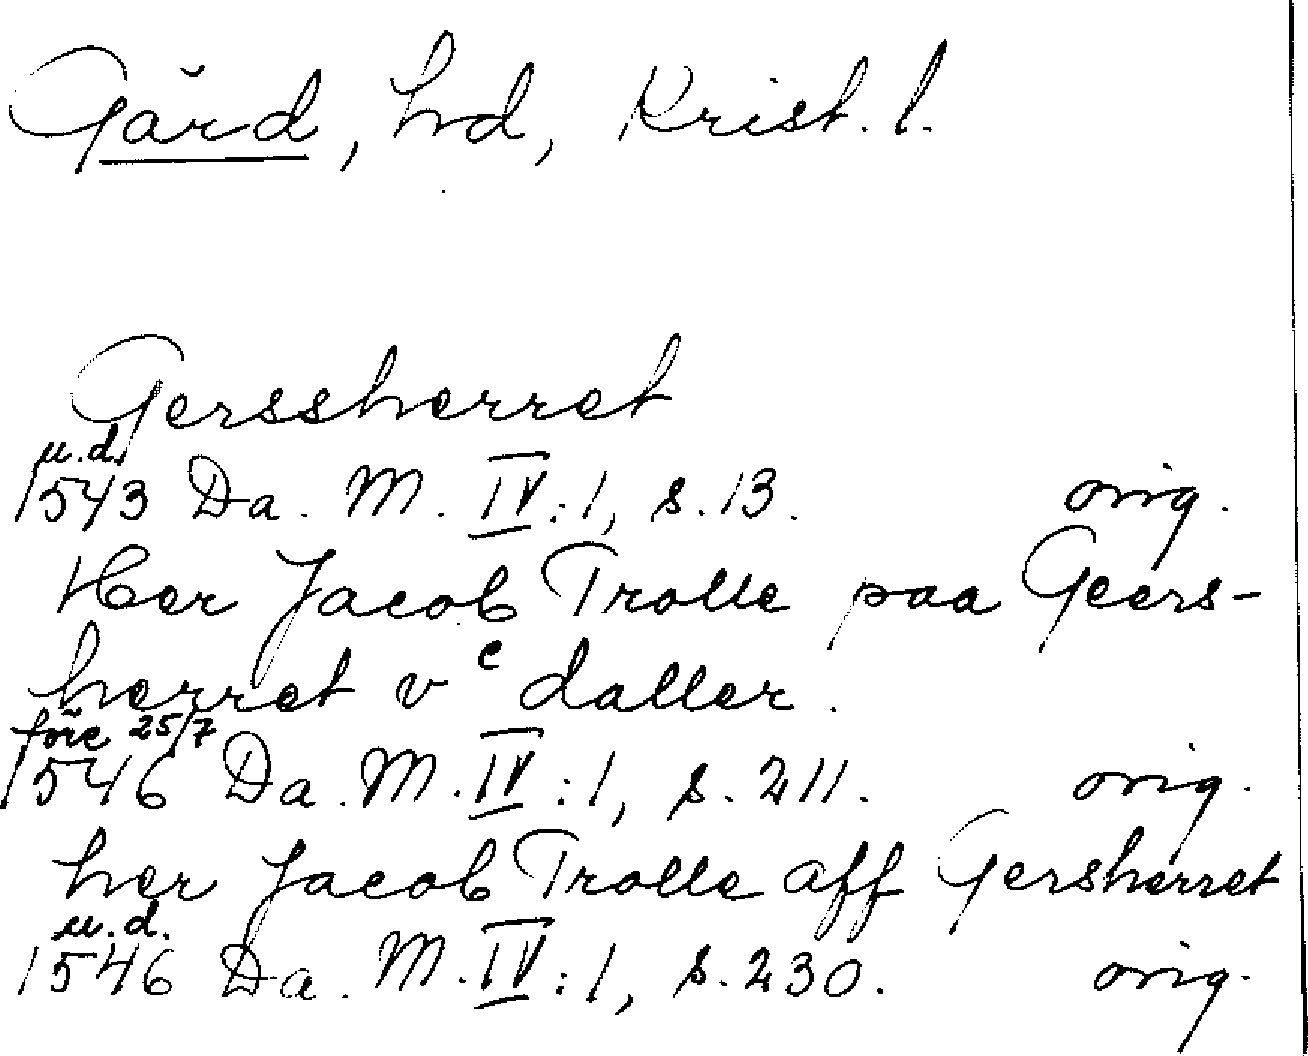 Gärd, hd, Krist. l.
Gerssherret
u.d.
1543 Da. M. IV:1, s. 13. orig.
Her Jacob Trolle paa Geers-
herret v c daller.
före 25/7
1546 Da. M. IV:1, s. 211. orig.
her Jacob Trolle aff Gersherret
u.d.
1546 Da. M. IV:1, s. 230. orig.